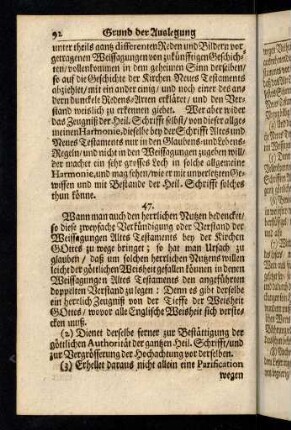 92 Grund der Auslegung
unter theils gantz differenten Reden und Bildern vor
getragenen Weissagungen von zukünfftigen Geschich-
ten/ vollenkommen in dem geheimen Sinn derselben/
so auf die Geschichte der Kirchen Neues Testaments
abziehlet/ mit ein ander einig/ und noch einer des an-
dern dunckele Redens-Arten erklärt/ und den Ver-
stand weislich zu erkennen giebet. Wer aber wider
das Zeugniß der Heil. Schrifft selbst/ von dieser allge-
meinen Harmonie, dieselbe bey der Schrifft Altes und
Neues Testaments nur in den Glaubens- und Lebens-
Regeln/ und nicht in den Weissagungen zugeben will/
der machet ein sehr grosses Loch in solche allgemeine
Harmonie, und mag sehen/ wie er mit unverletzten Ge-
wissen und mit Bestande der Heil. Schrifft solches
thun könne.
47.
Wann man auch den herrlichen Nutzen bedencket/
so diese zweyfache Verkündigung oder Verstand der
Weissagungen Altes Testaments bey der Kirchen
GOttes zu wege bringet; so hat man Ursach zu
glauben/ daß um solchen herrlichen Nutzens willen
leicht der göttlichen Weisheit gefallen können in denen
Weissagungen Altes Testaments den angeführten
doppelten Verstand zu legen: Denn es gibt derselbe
ein herrlich Zeugniß von der Tieffe der Weisheit
GOttes/ wovor alle Englische Weisheit sich verste-
cken muß.
(2) Dienet derselbe ferner zur Bestättigung der
göttlichen Authorität der gantzen Heil. Schrifft/ und
zur Vergrösserung der Hochachtung vor derselben.
(3) Erhellet daraus nicht allein eine Parification
wegen